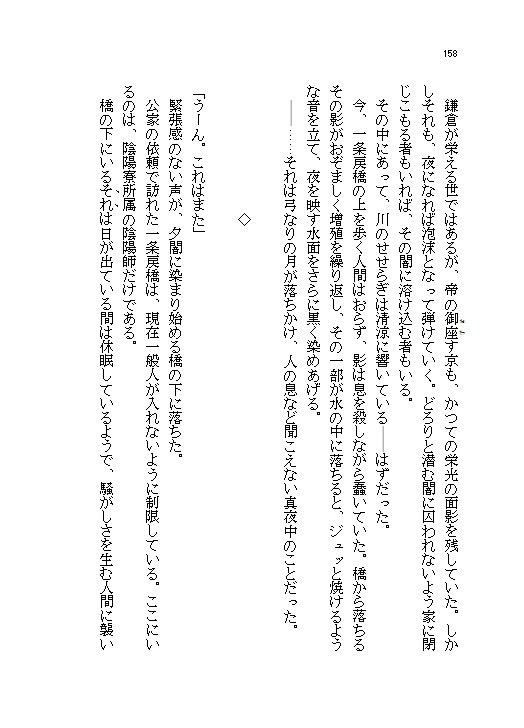 158
鎌倉が栄える世ではあるが、帝の御座す京も、かつての栄光の面影を残していた。しか
しそれも、夜になれば泡沫となって弾けていく。どろりと潜む闇に囚われないよう家に閉
じこもる者もいれば、その闇に溶け込む者もいる。
その中にあって、川のせせらぎは清涼に響いている――はずだった。
今、一条戻橋の上を歩く人間はおらず、影は息を殺しながら蠢いていた。橋から落ちる
その影がおぞましく増殖を繰り返し、その一部が水の中に落ちると、ジュッと焼けるよう
な音を立て、夜を映す水面をさらに黒く染めあげる。
――……それは弓なりの月が落ちかけ、人の息など聞こえない真夜中のことだった。
◇
「うーん。これはまた」
緊張感のない声が、夕闇に染まり始める橋の下に落ちた。
公家の依頼で訪れた一条戻橋は、現在一般人が入れないように制限している。ここにい
るのは、陰陽寮所属の陰陽師だけである。
橋の下にいるそれは日が出ている間は休眠しているようで、騒がしさを生む人間に襲い